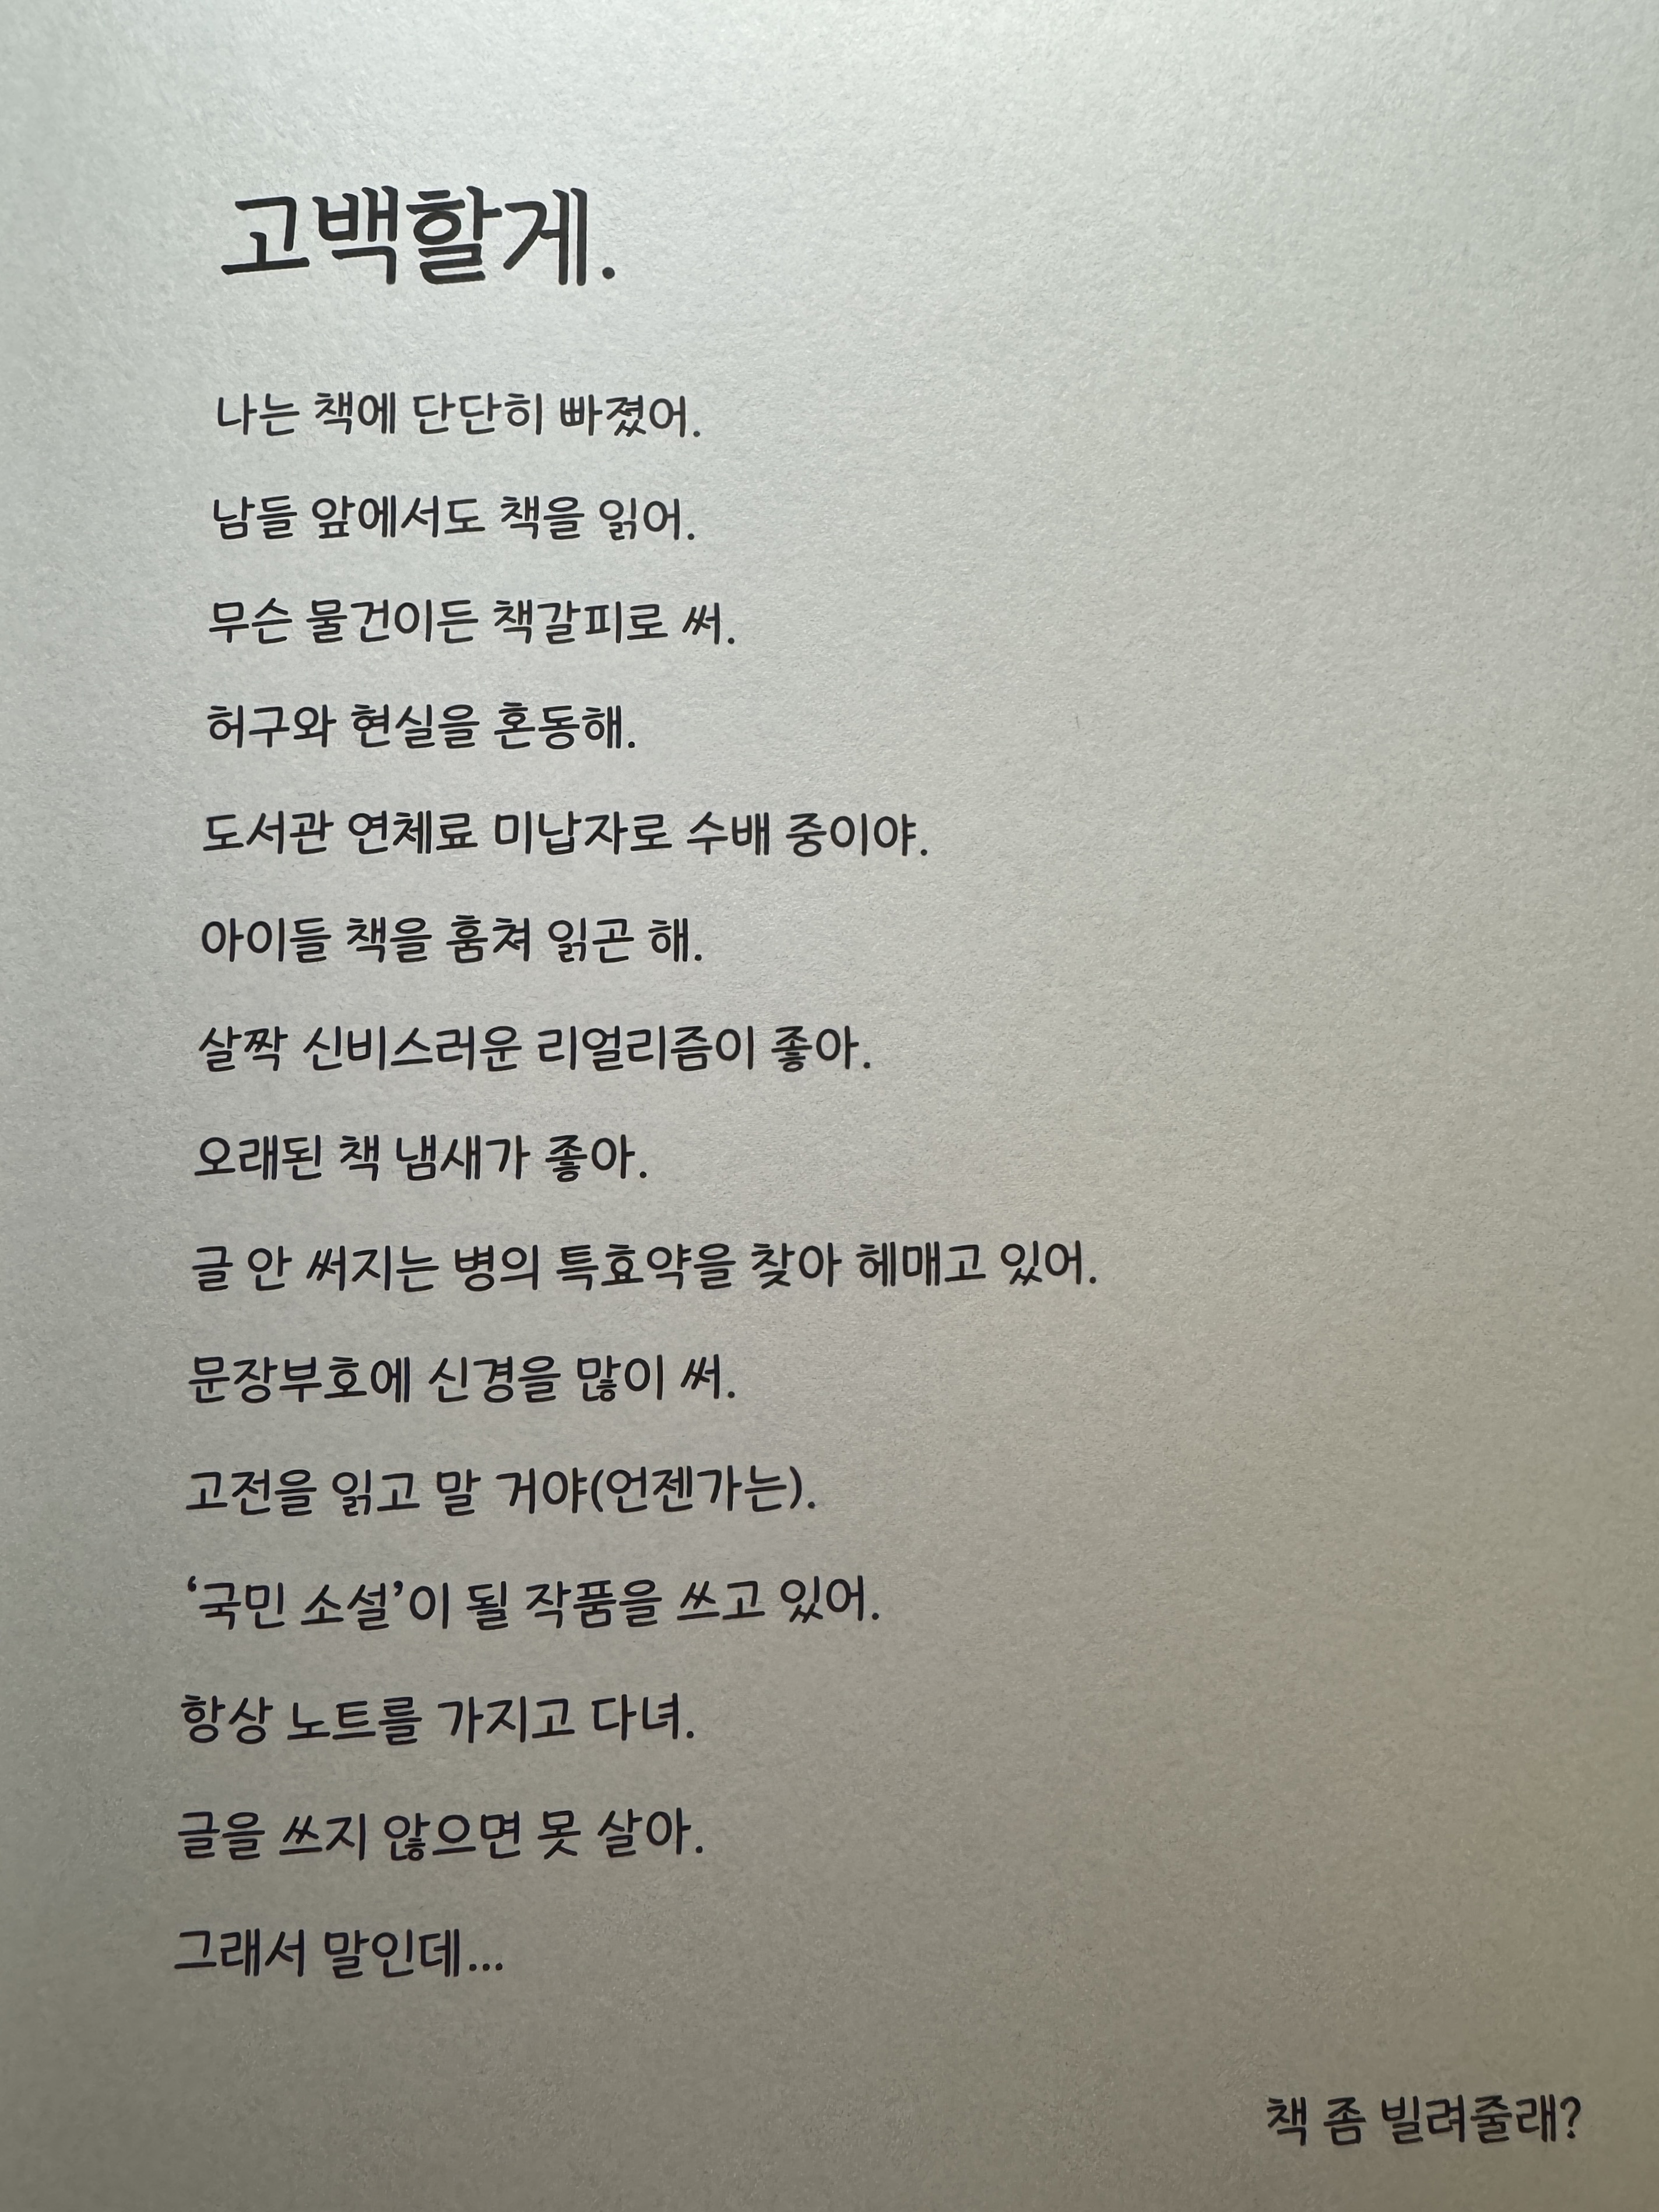 고백할게.
나는 책에 단단히 빠졌어.
남들 앞에서도 책을 읽어.
무슨 물건이든 책갈피로 써.
허구와 현실을 혼동해.
도서관 연체료 미납자로 수배 중이야.
아이들 책을 훔쳐 읽곤 해.
살짝 신비스러운 리얼리즘이 좋아.
오래된 책 냄새가 좋아.
글 안 써지는 병의 특효약을 찾아 헤매고 있어.
문장부호에 신경을 많이 써.
고전을 읽고 말 거야(언젠가는).
‘국민 소설’이 될 작품을 쓰고 있어.
항상 노트를 가지고 다녀.
글을 쓰지 않으면 못 살아.
그래서 말인데...
책 좀 빌려줄래?